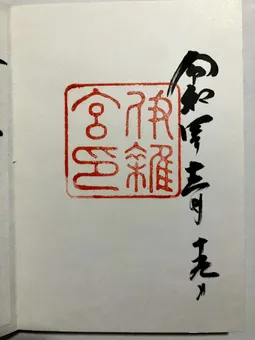 令和四年十二月十九日
伊雜
宮印